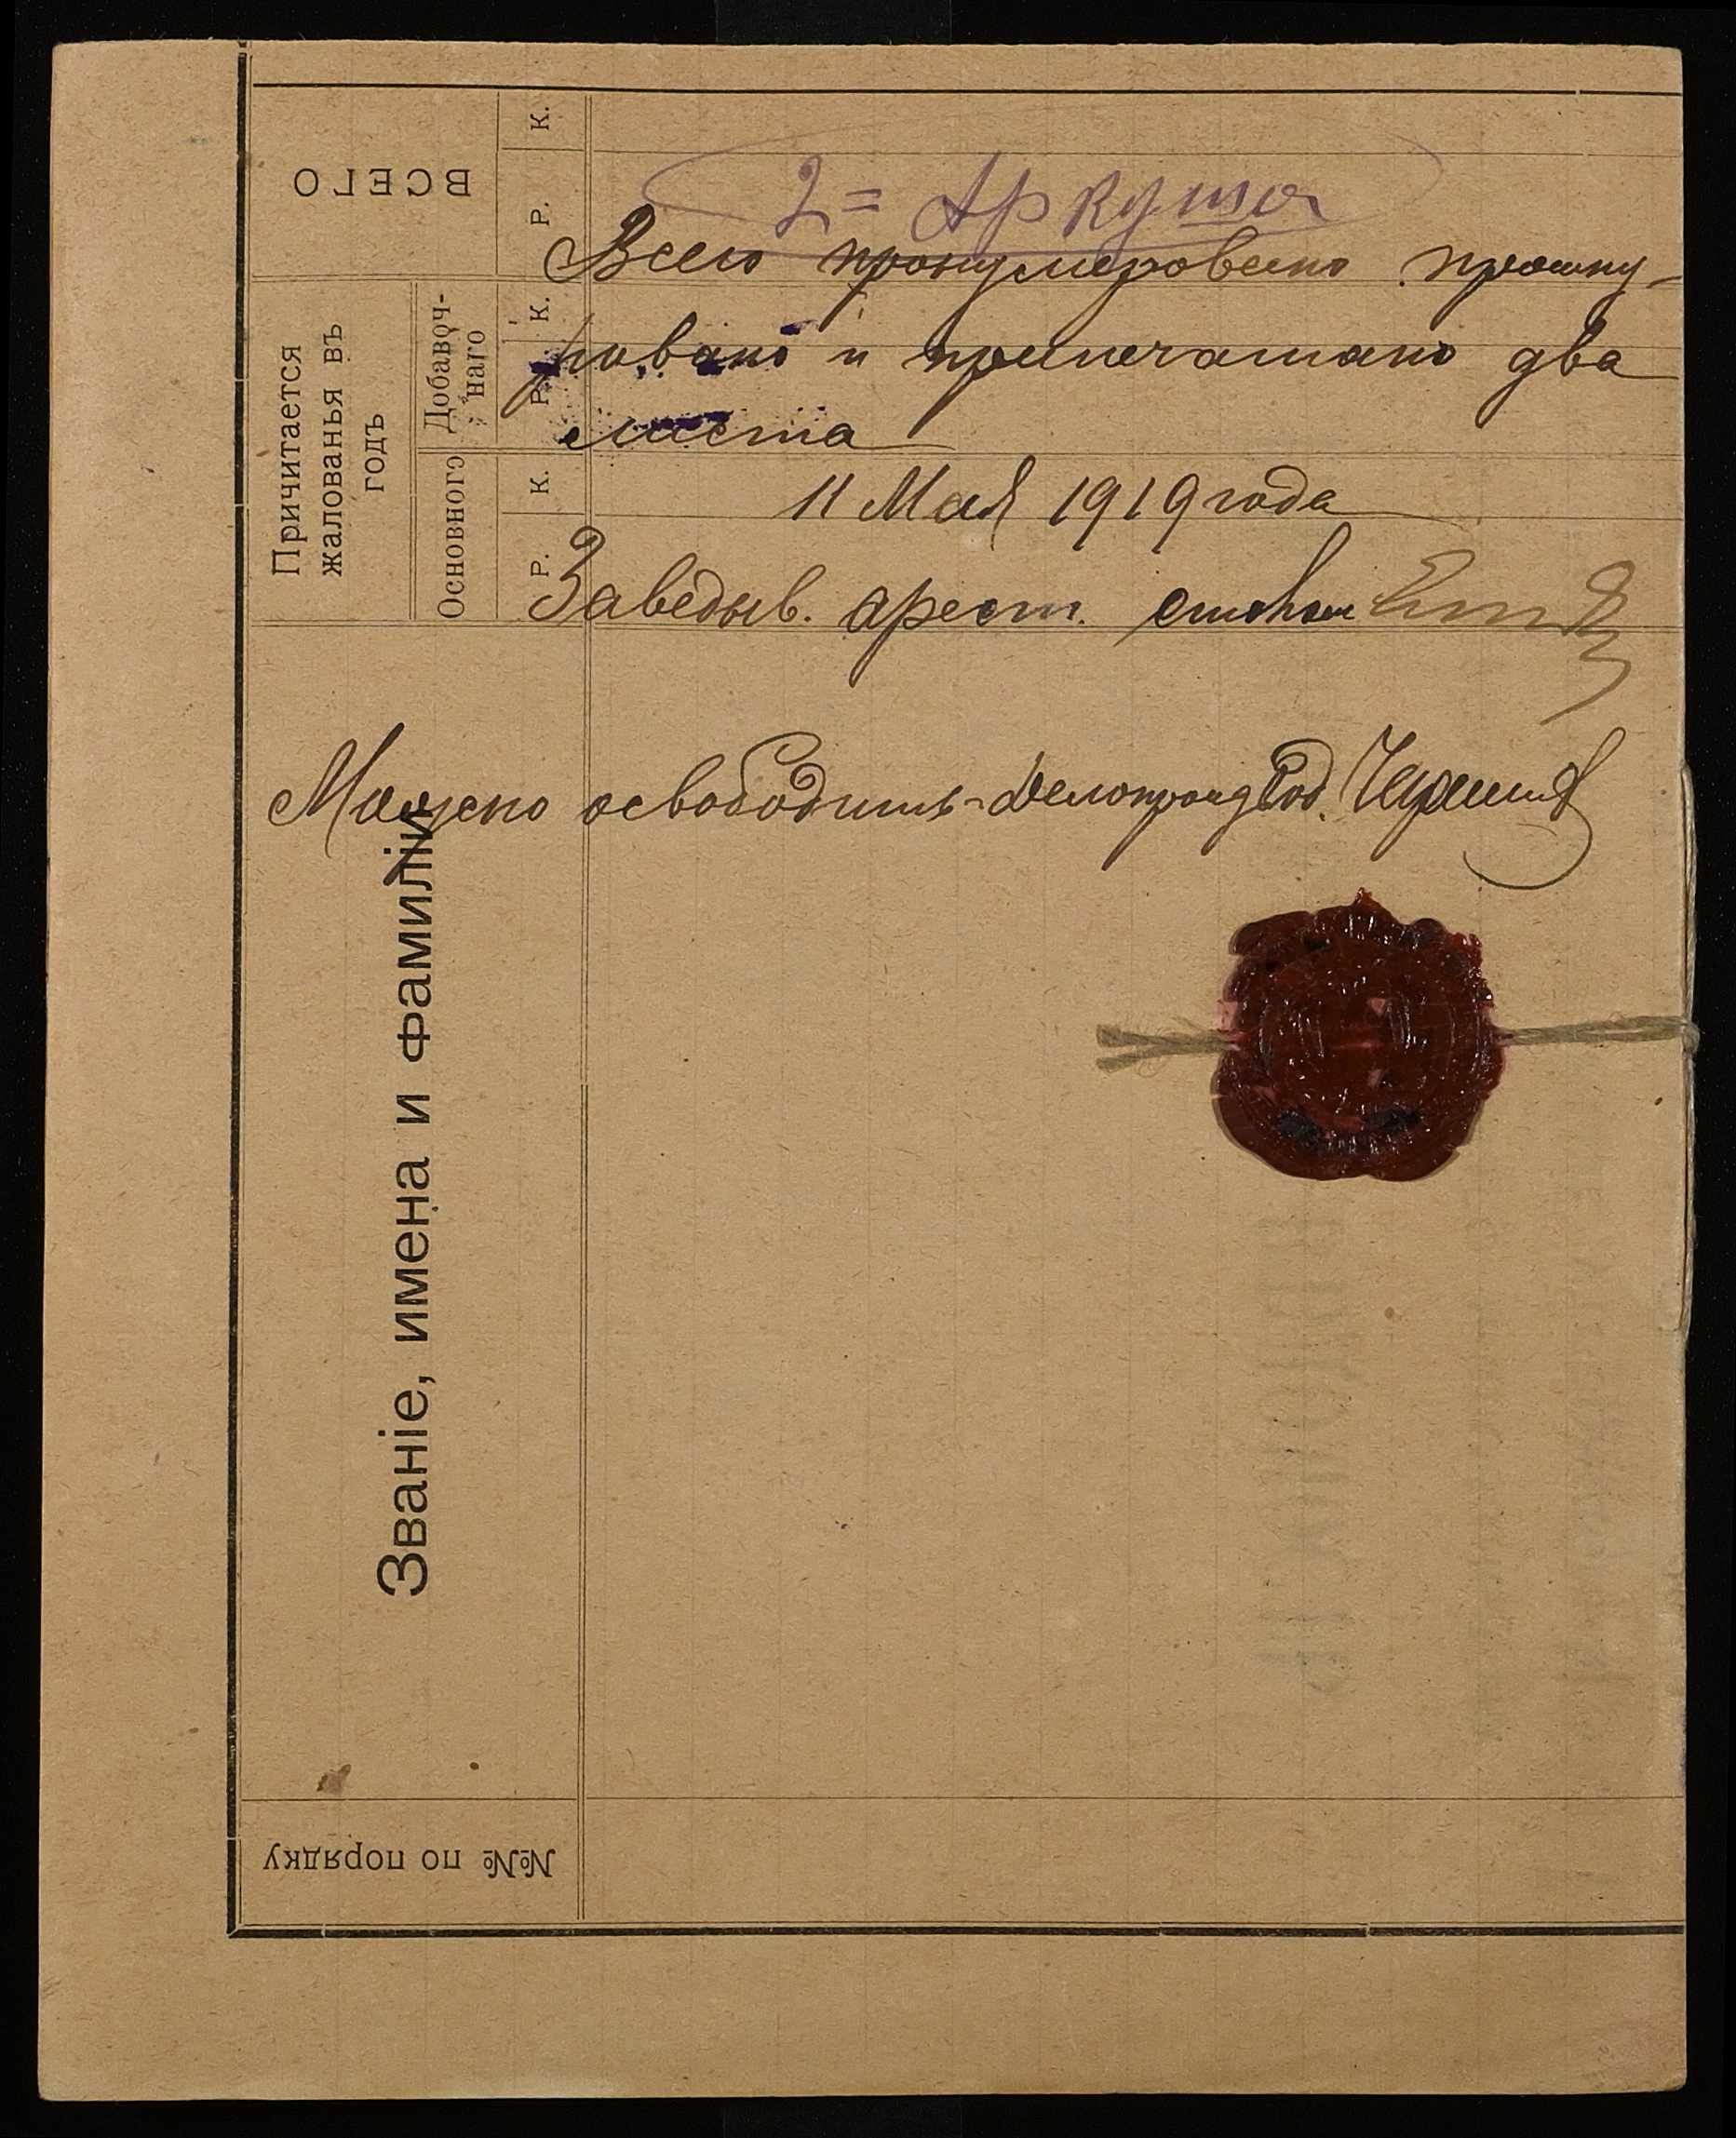 ВСЕГО
Р. К.
Причитается
жалованья въ
годъ
Добавоч-
наго
Р. К.
Основного
Р. К.
Званіе, имена и фамиліи
№№ по порядку
2= Аркуша
Всего пронумеровано прошну-
ровано и припечатано два
листа
11 Мая 1919 года
Заведыв. арест. столом
Можно освободить